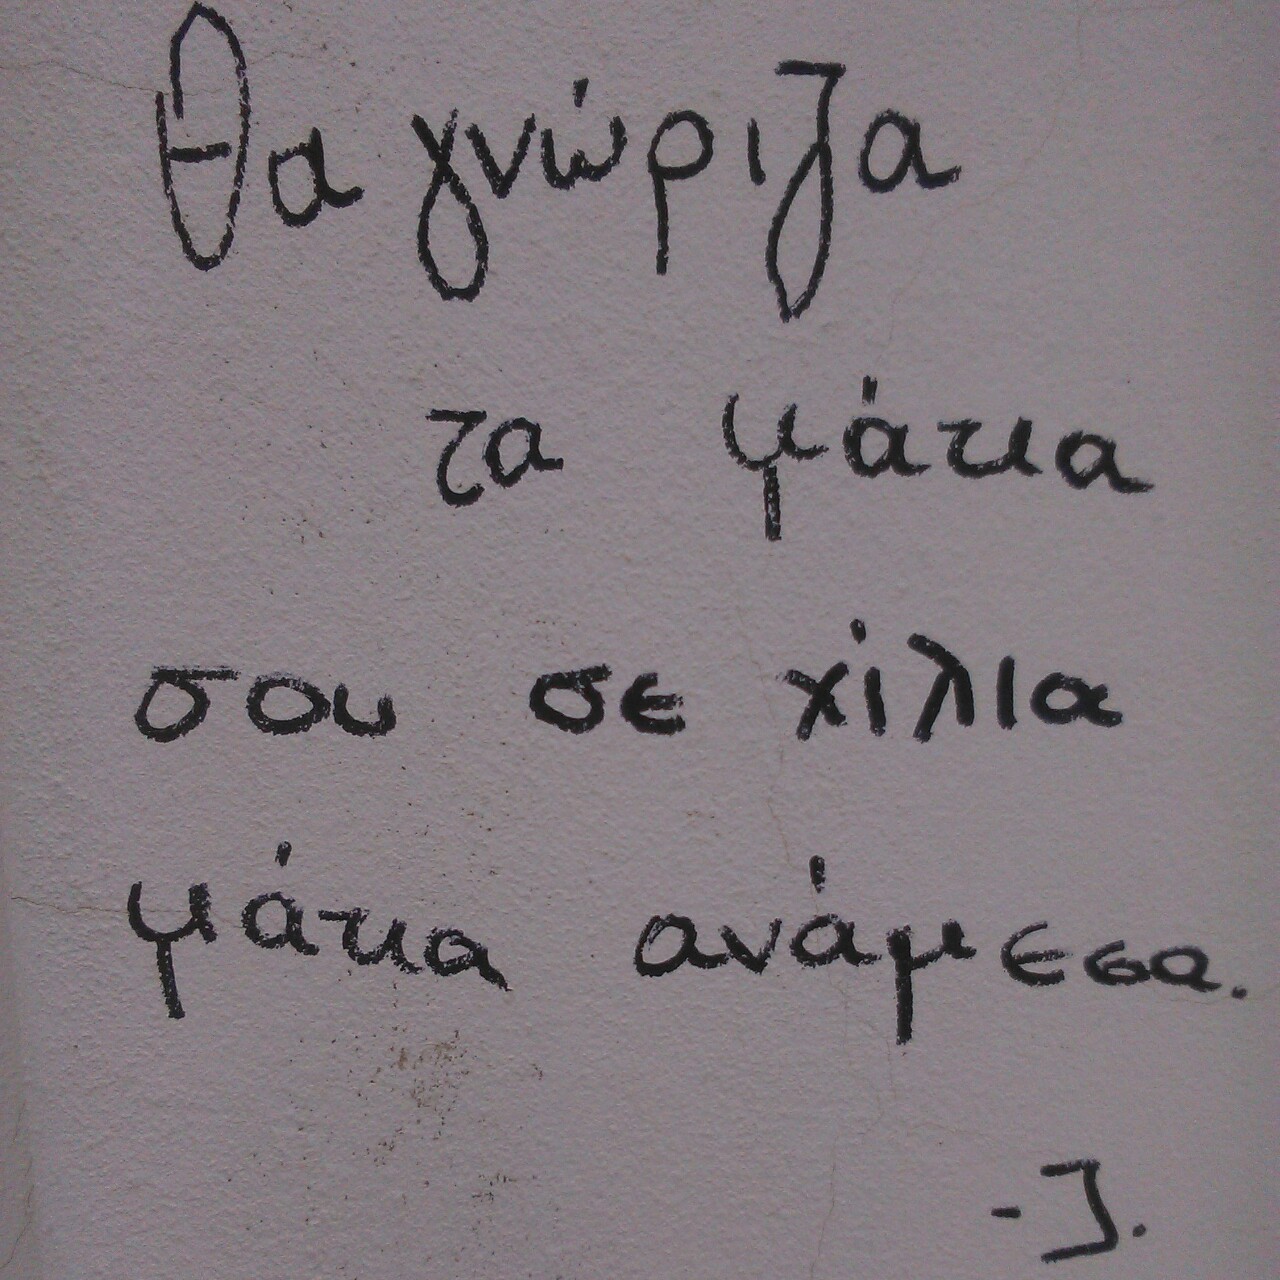 Θα γνώριζα
τα μάτια
σου σε χίλια
μάτια ανάμεσα.
-J.